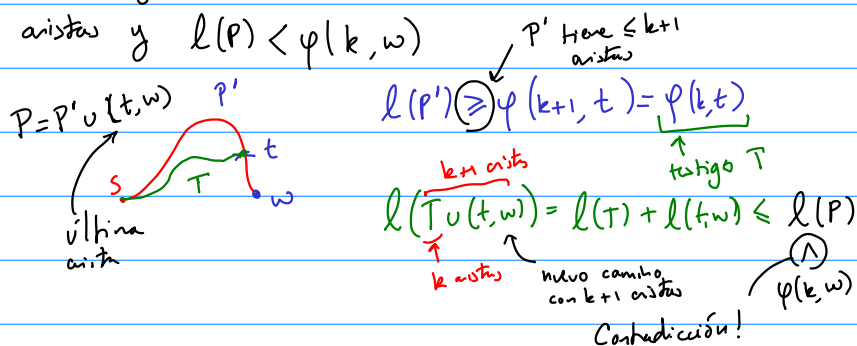 aristas y l(P) < φ(k,w)
P' tiene ≤ k+1
aristas
P = P' ∪ (t,w)
P'
l(P') ≥ φ(k+1, t) = φ(k,t)
t
testigo T
S
T
w
k+1 aristas
l(T ∪ (t,w)) = l(T) + l(t,w) ≤ l(P)
última
arista
k aristas
nuevo camino
con k+1 aristas
∧
φ(k,w)
Contradicción!